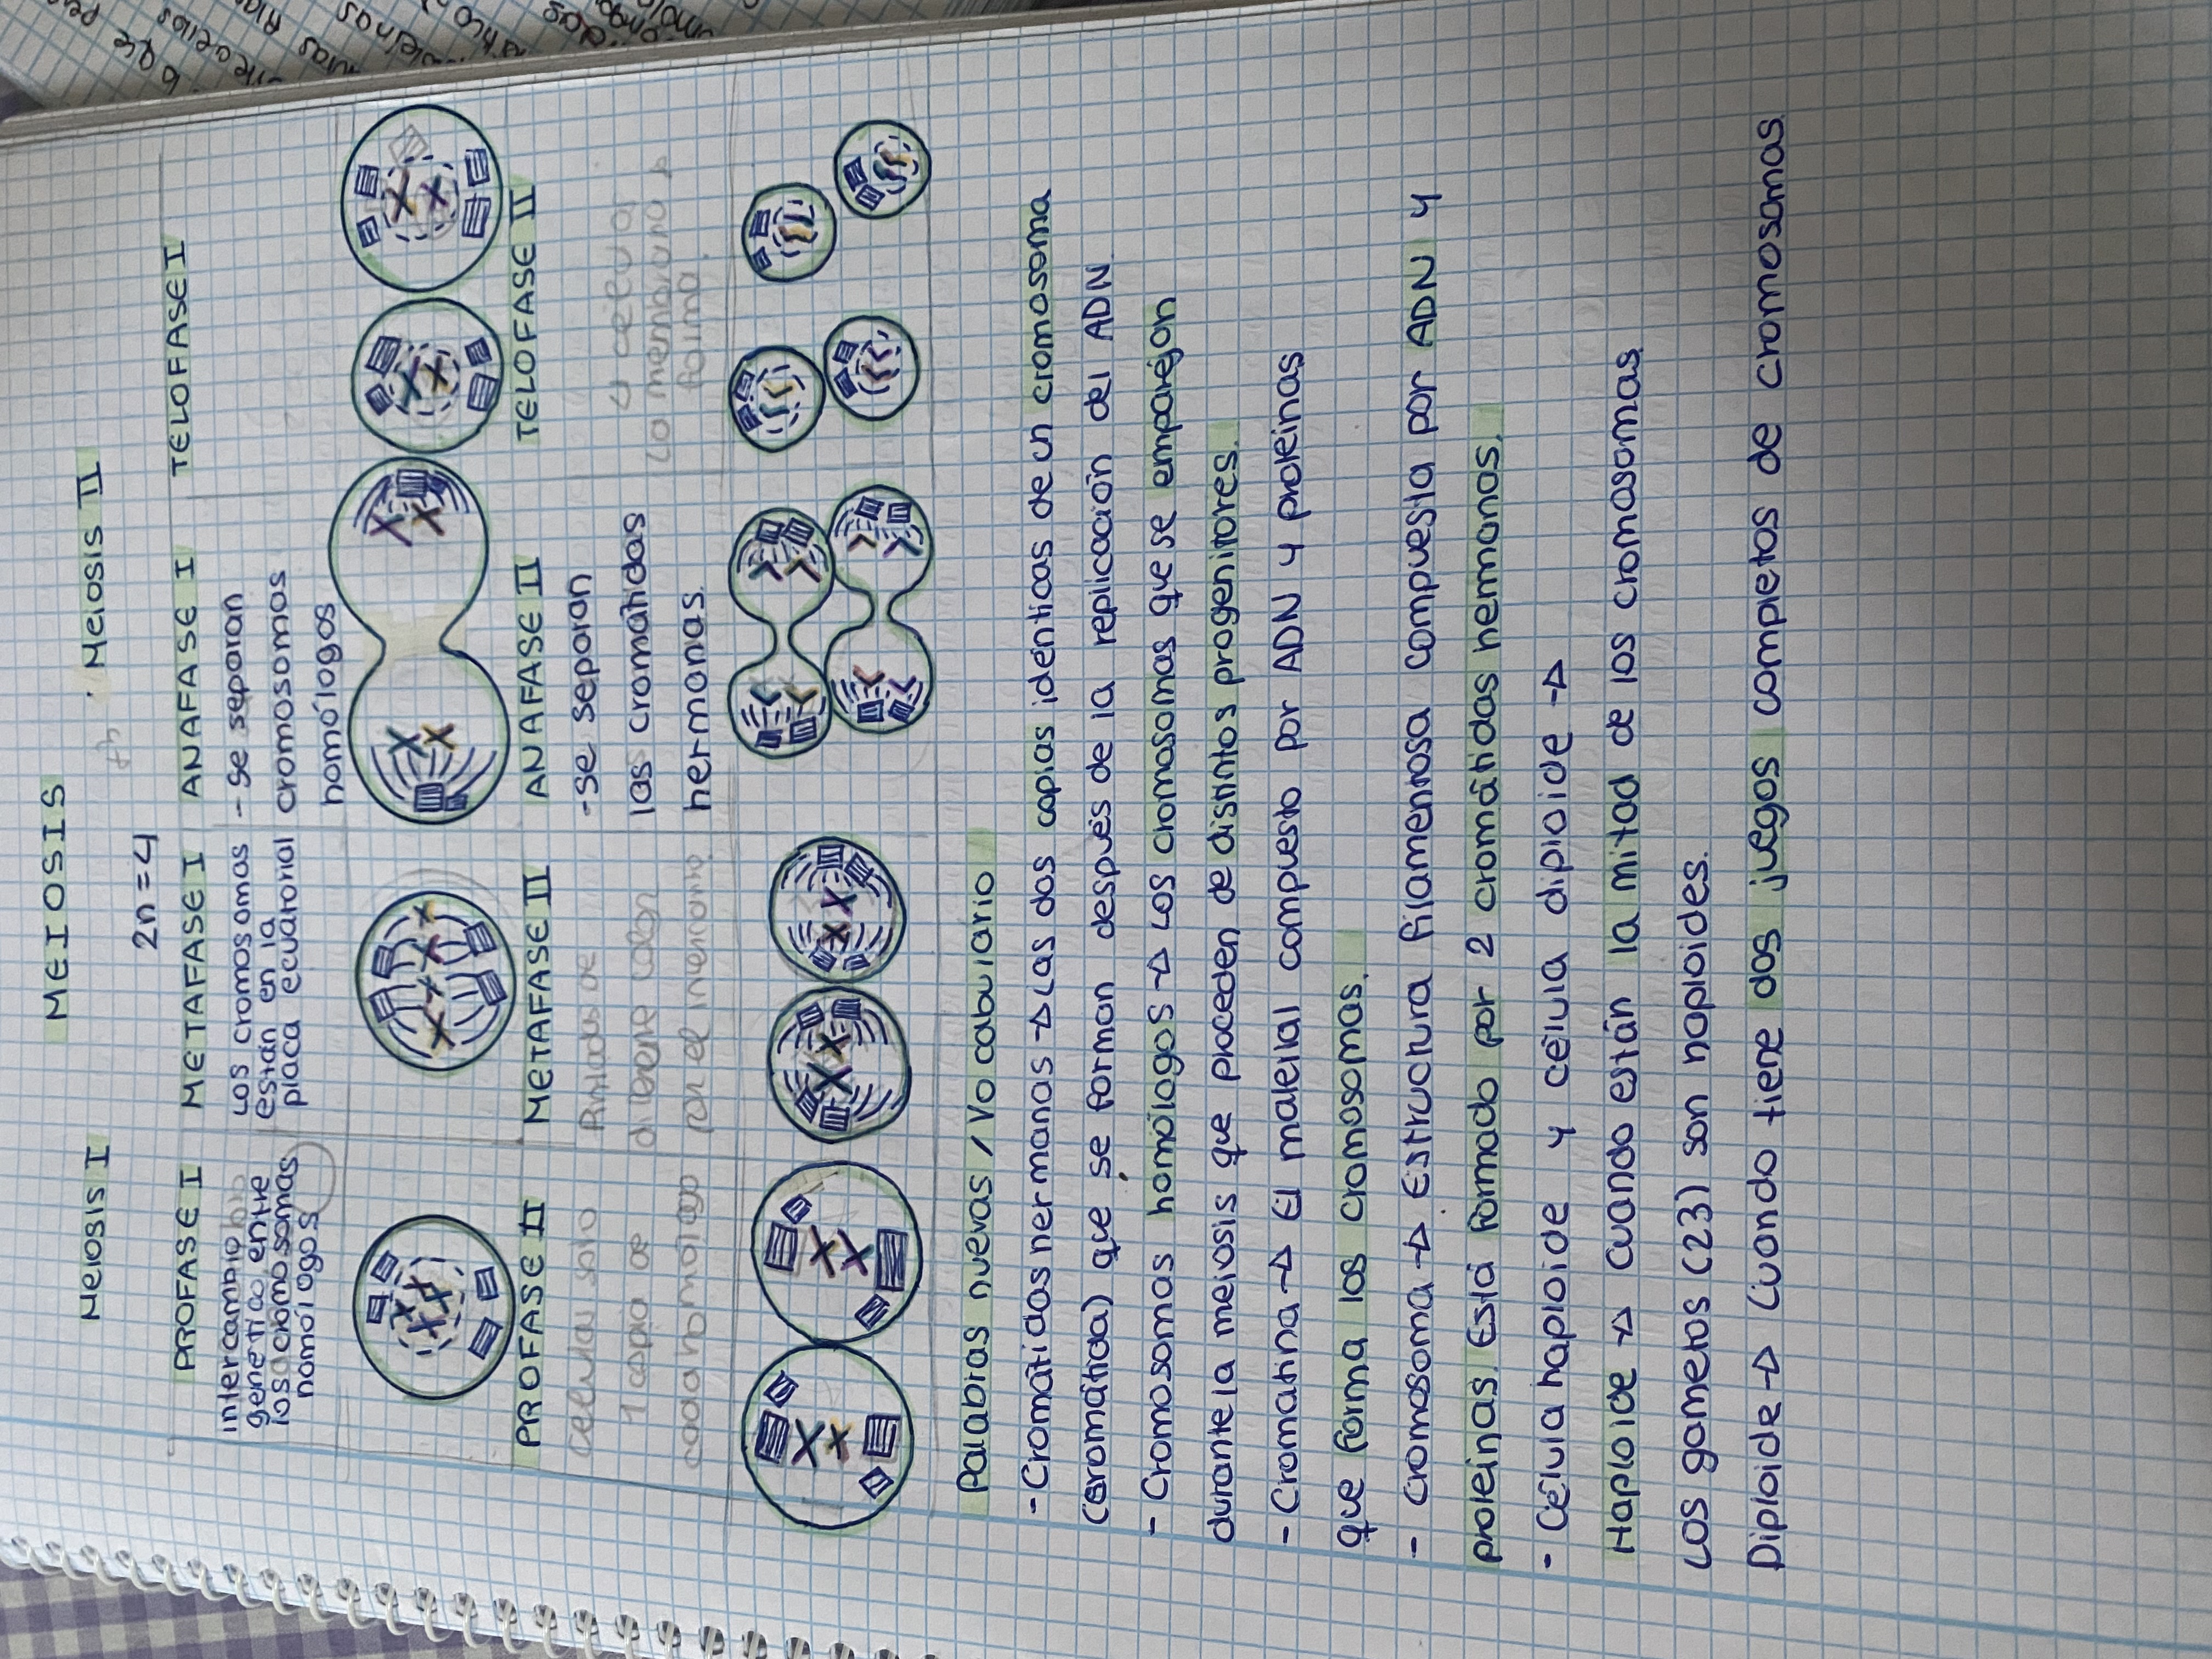 MEIOSIS
Meiosis I
Meiosis II
2n=4
PROFASE I
intercambio
genético entre
los cromosomas
homólogos
METAFASE I
Los cromosomas
están en la
placa ecuatorial
ANAFASE I
- se separan
cromosomas
homólogos
TELOFASE I
PROFASE II
celular solo
1 copia de
cada homólogo
METAFASE II
Pintadas de
diferente color
por el
ANAFASE II
- se separan
las cromátidas
hermanas.
TELOFASE II
4 células
La membrana
forma
Palabras nuevas / Vocabulario
- Cromátidas hermanas → Las dos copias idénticas de un cromosoma
(cromátida) que se forman después de la replicación del ADN.
- Cromosomas homólogos → Los cromosomas que se emparejan
durante la meiosis que proceden de distintos progenitores.
- Cromatina → El material compuesto por ADN y proteínas
que forma los cromosomas.
- Cromosoma → Estructura filamentosa compuesta por ADN y
proteínas. Está formado por 2 cromátidas hermanas.
- Célula haploide y célula diploide →
Haploide → Cuando están la mitad de los cromosomas.
Los gametos (23) son haploides.
Diploide → Cuando tiene dos juegos completos de cromosomas.